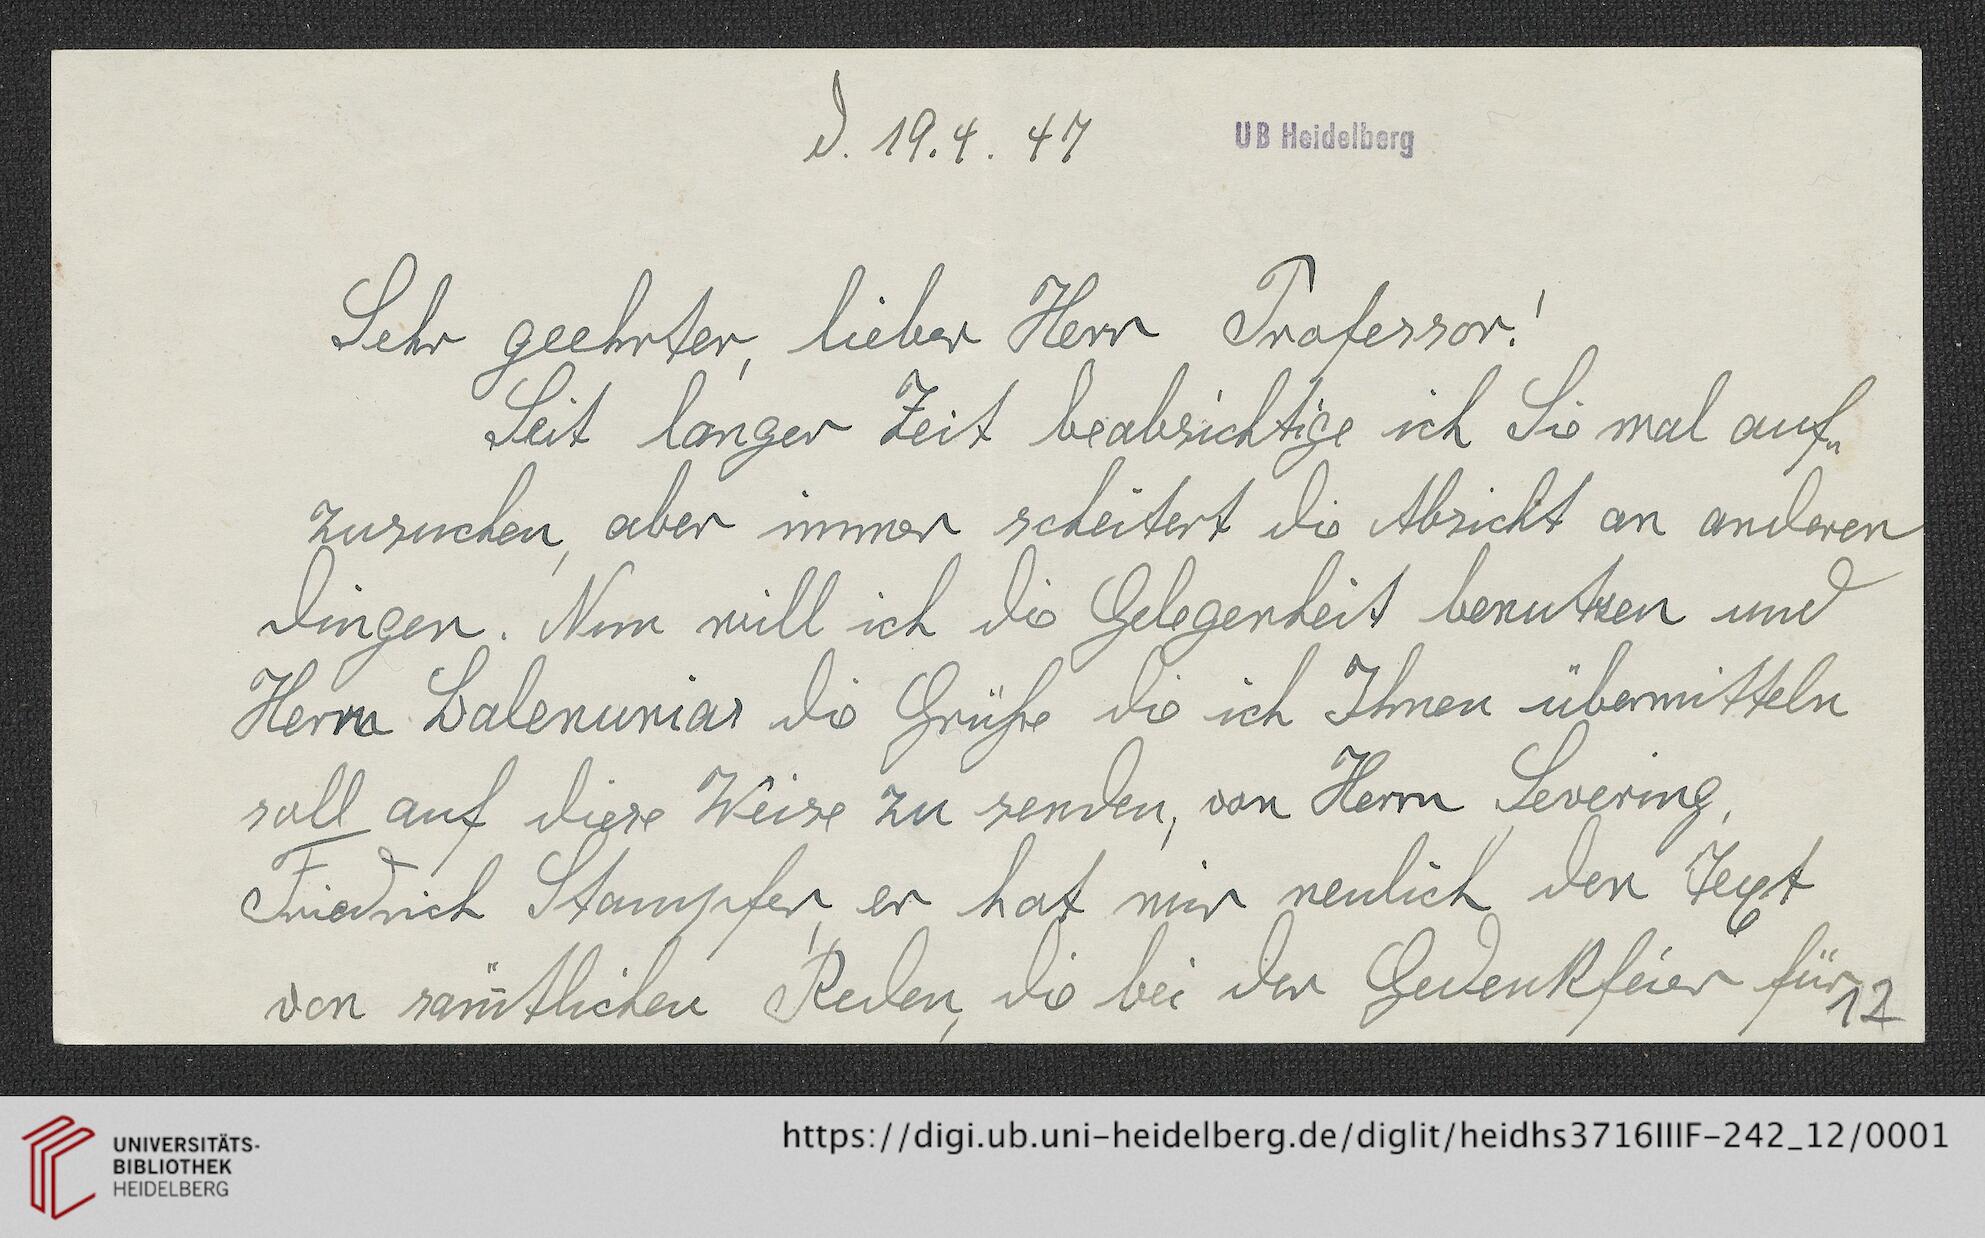 d. 19.4.47
UB Heidelberg
Sehr geehrter, lieber Herr Professor!
Seit langer Zeit beabsichtige ich Sie mal auf-
zusuchen, aber immer scheitert die Absicht an anderen
Dingen. Nun will ich die Gelegenheit benutzen und
Herrn die Grüße die ich Ihnen übermitteln
soll auf diese Weise zu senden, von Herrn Severing,
Friedrich Stampfer, er hat mir neulich den Text
von sämtlichen Reden, die bei der Gedenkfeier für
12
UNIVERSITÄTS-
BIBLIOTHEK
HEIDELBERG
https://digi.ub.uni-heidelberg.de/diglit/heidhs3716IIIF-242_12/0001